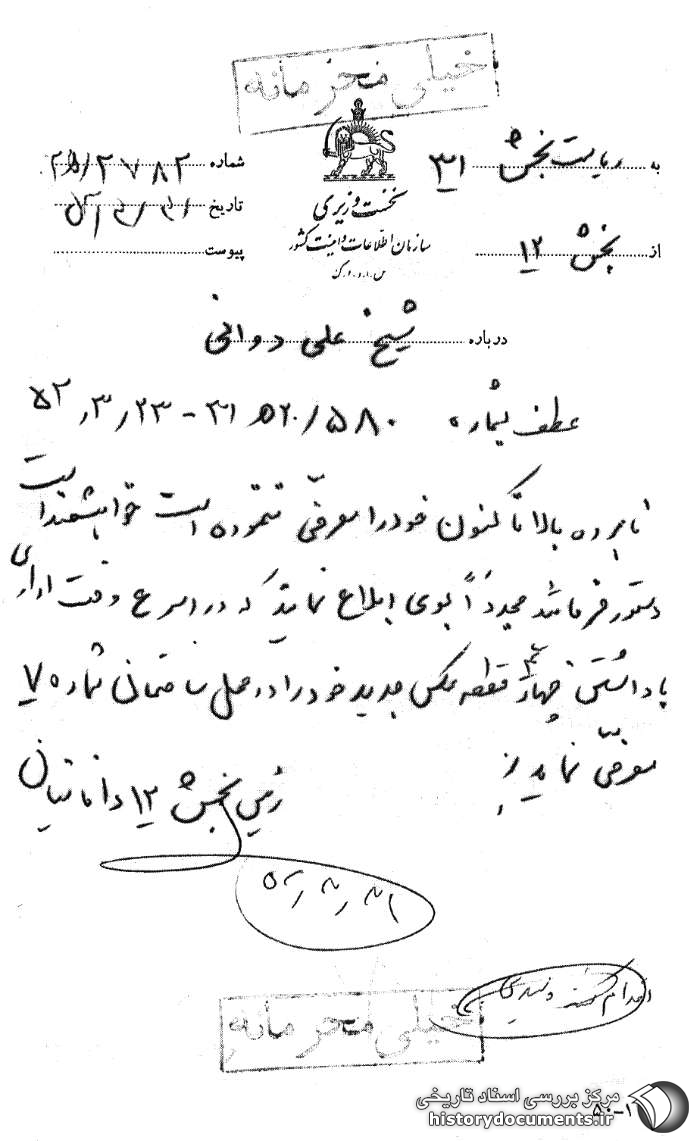 خیلی محرمانه
به ریاست بخش ۳۱
شماره
از بخش ۱۲
تاریخ
پیوست
نخست وزیری
سازمان اطلاعات و امنیت کشور
س.ا.و.ا.ک
درباره شیخ علی دوانی
عطف بشماره ۵۸۰/ ۵۲۰ ۳۱ - ۲۳/۳/۵۲
نامبرده بالا تاکنون خود را معرفی ننموده است خواهشمند است
دستور فرمائید مجدداً بوی ابلاغ نمایند که در اسرع وقت اداری
با داشتن چهار قطعه عکس جدید خود را در محل ساختمان شماره ۷
معرفی نماید
رئیس بخش ۱۲
اقدام کننده
خیلی محرمانه
مرکز بررسی اسناد تاریخی
historydocuments.ir